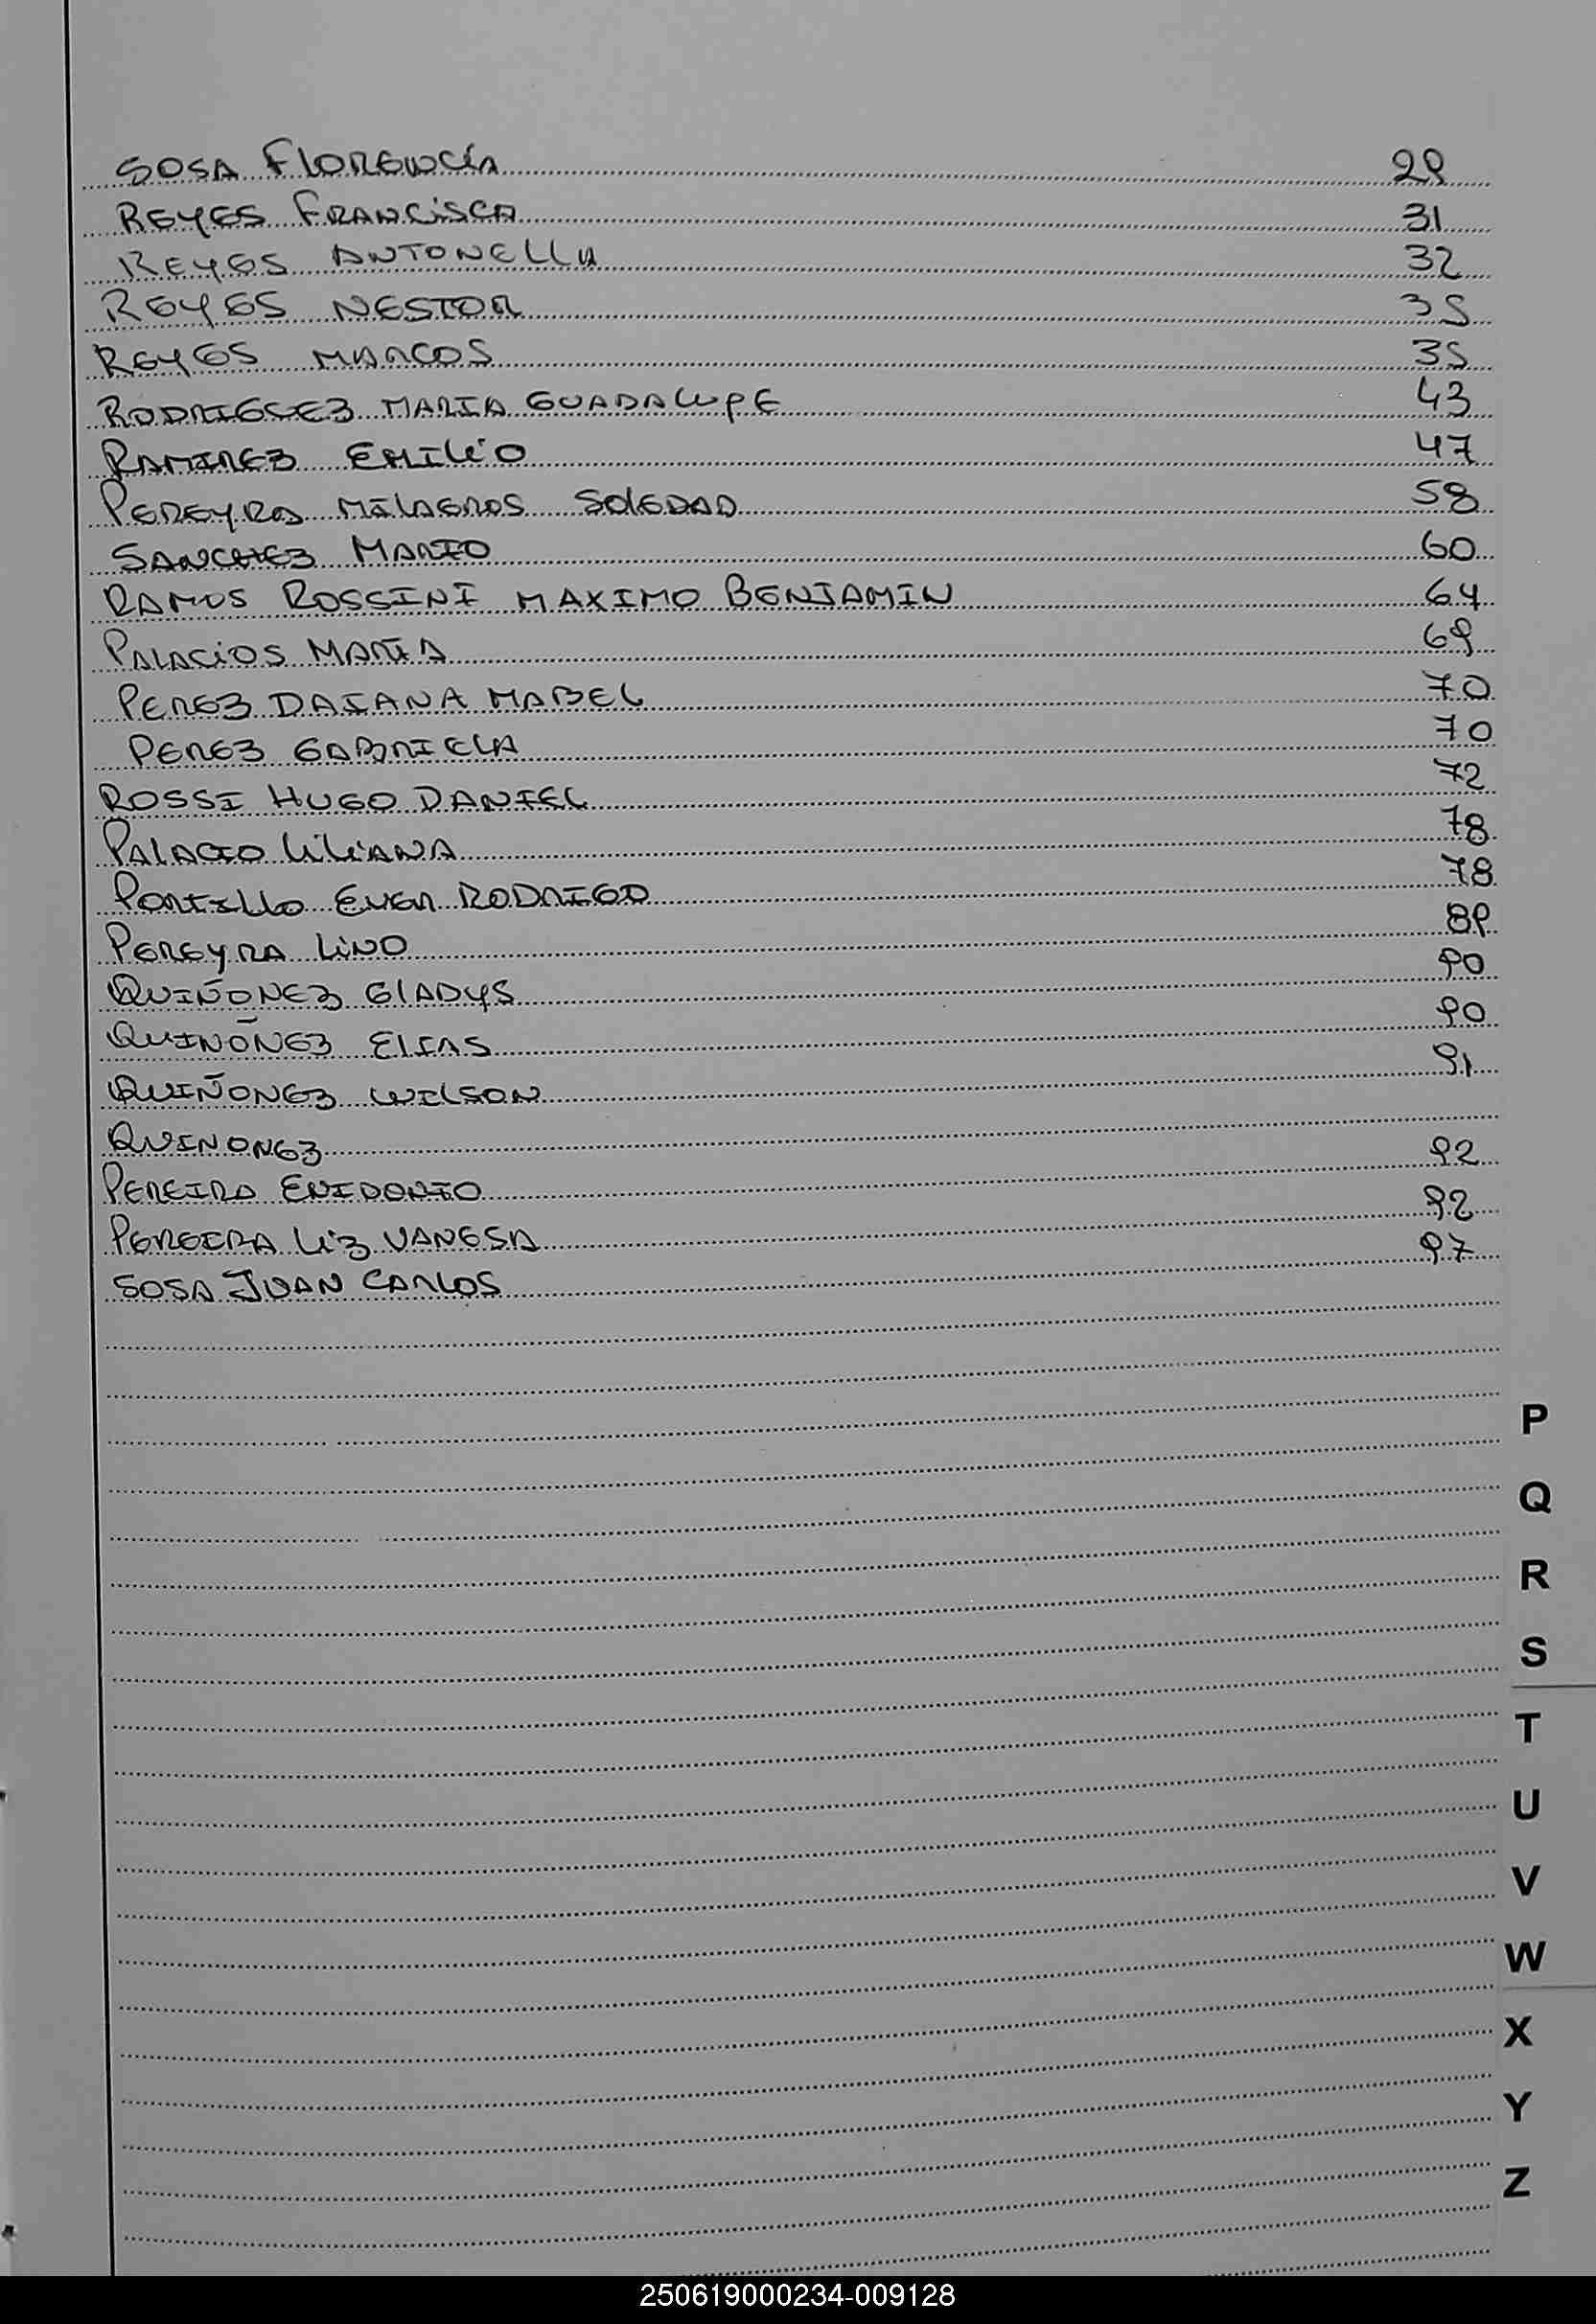 SOSA FLORENCIA 29
REYES FRANCISCA 31
REYES ANTONELLA 32
REYES NESTOR 35
REYES MARCOS 35
RODRIGUEZ MARIA GUADALUPE 43
RAMIREZ EMILIO 47
PEREYRA MILAGROS SOLEDAD 58
SANCHEZ MARIO 60
RAMOS ROSSINI MAXIMO BENJAMIN 64
PALACIOS MARIA 69
PEREZ DAIANA MABEL 70
PEREZ GABRIELA 70
ROSSI HUGO DANIEL 72
PALACIO LILIANA 78
PORTILLO EVER RODRIGO 78
PEREYRA LINO 89
QUIÑONEZ GLADYS 90
QUIÑONEZ ELIAS 90
QUIÑONEZ WILSON 91
QUINONEZ
PEREIRA 92
PEREIRA LIZ VANESA 92
SOSA JUAN CARLOS 97
P
Q
R
S
T
U
V
W
X
Y
Z
250619000234-009128